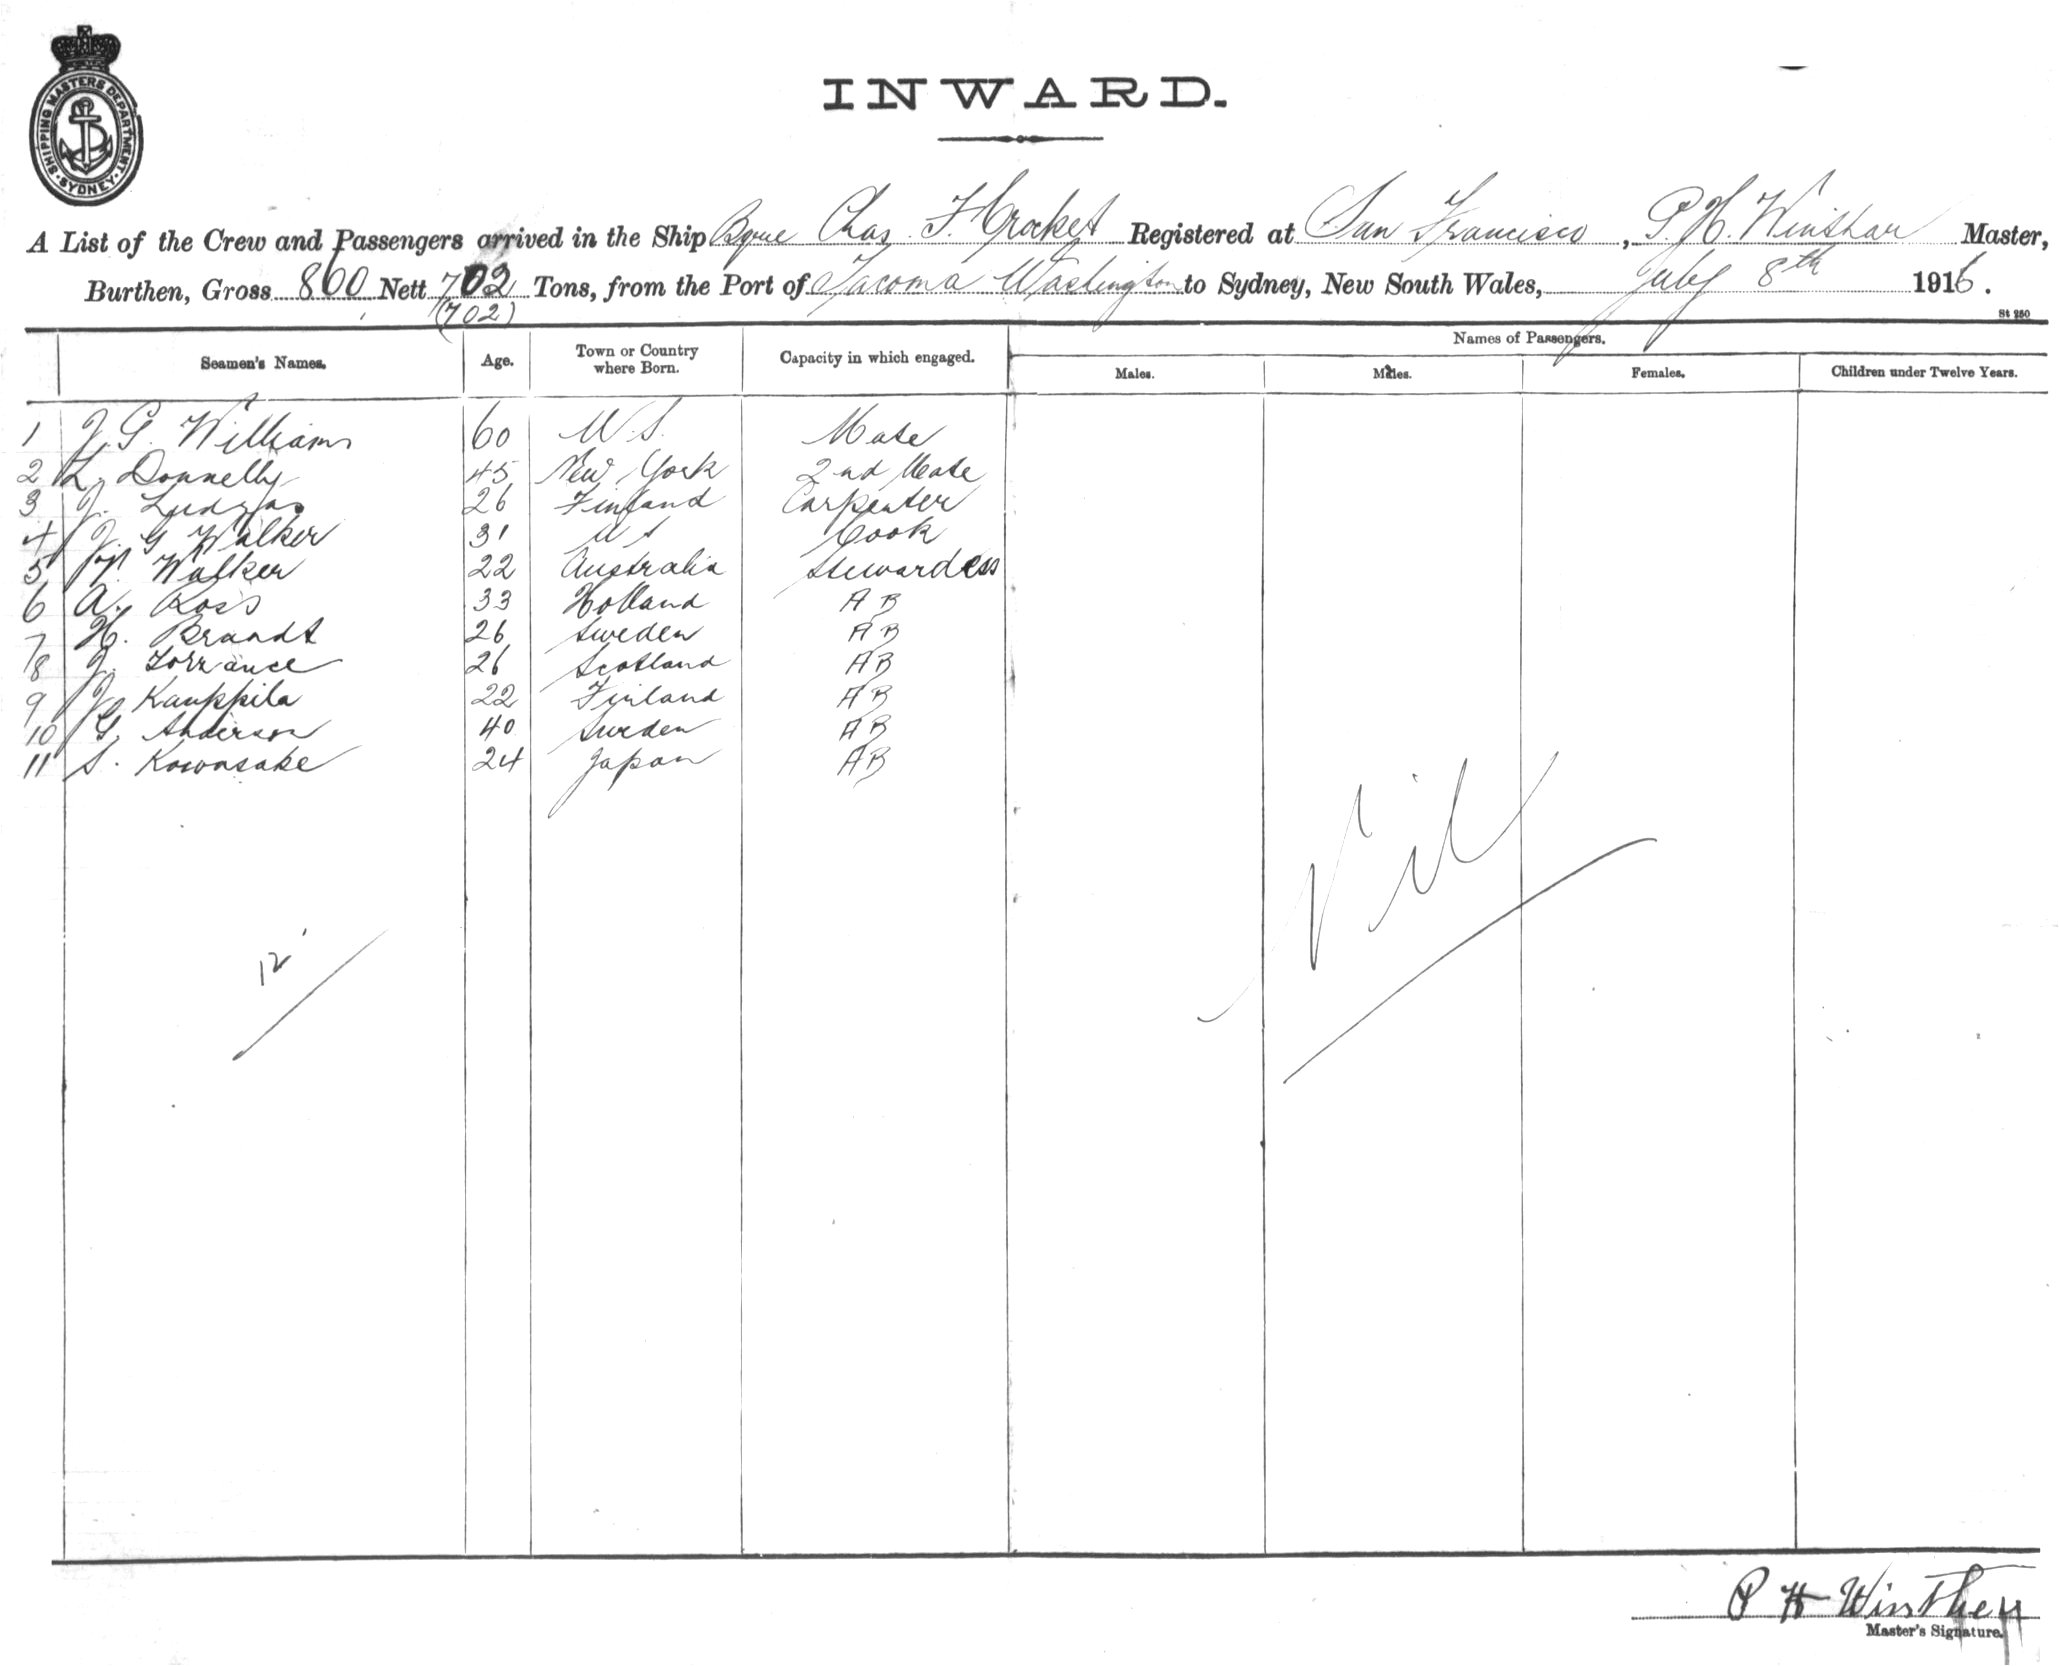 SHIPPING MASTERS DEPARTMENT · SYDNEY ·
INWARD.
A List of the Crew and Passengers arrived in the Ship Bque Chas. F. Crocket Registered at San Francisco, P. H. Winthar Master,
Burthen, Gross 860 Nett 702 Tons, from the Port of Tacoma Washington to Sydney, New South Wales, July 8th 1916.
(702)
St 250
Names of Passengers.
Seamen's Names. Age. Town or Country where Born. Capacity in which engaged. Males. Males. Females. Children under Twelve Years.
1 J. G. Williams 60 U.S. Mate
2 L. Donnelly 45 New York 2nd Mate
3 J. 26 Finland Carpenter
4 J. G. Walker 31 U S Cook
5 Walker 22 Australia Stewardess
6 A. Ross 33 Holland A B
7 H. Brandt 26 Sweden A B
8 J. Torrance 26 Scotland A B
9 J. Kauppila 22 Finland A B
10 G. Anderson 40 Sweden A B
11 S. Kowasake 24 Japan A B
Nil
12
P H Winther
Master's Signature.